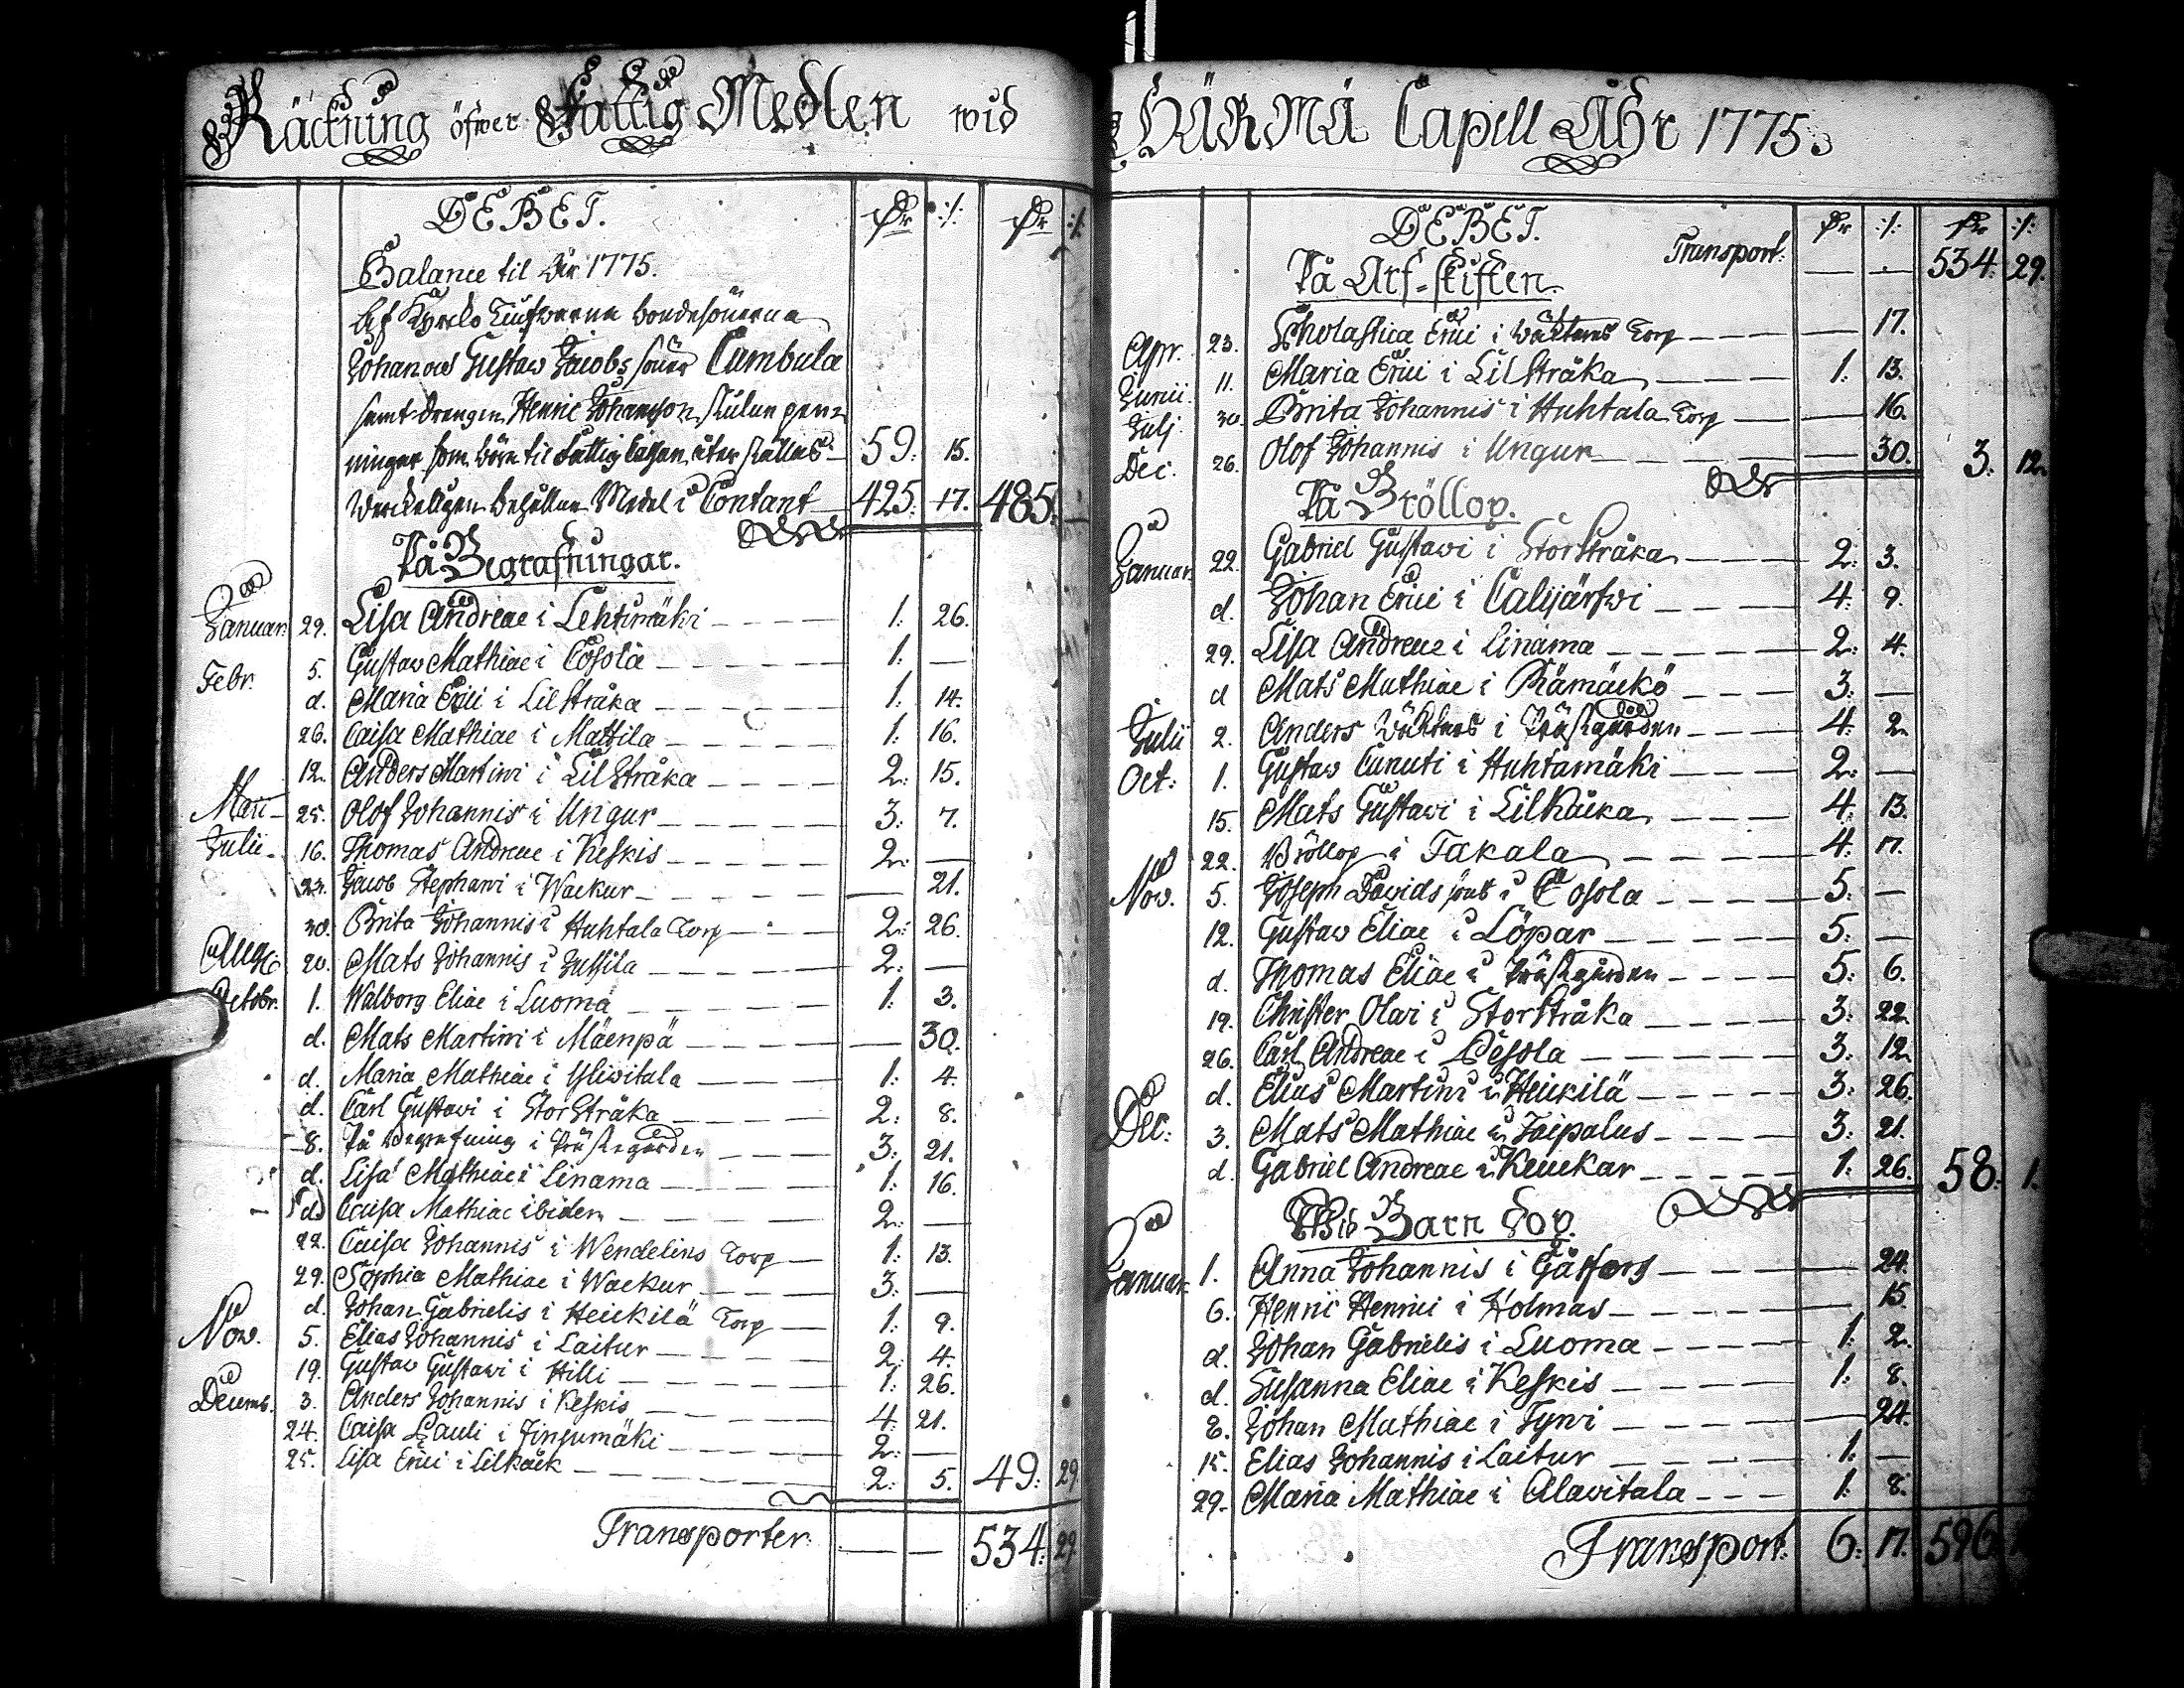 Räckning öfwer Fattig Medlen wid
DEBET. Dr :/: Dr :/:
Balance til År 1775.
Af Kyrko Tiufwarna bondesönerna
Johan och Gustaw Jacobs söner Cumbula
samt drengen Henric Johansson stulne pen-
ningar som böra til Fattig Cassan åter ställas 59: 15.
Werckeligen behållne Medel i Contant 425: 17. 485: —
På Begrafningar.
Januar. 29. Lisa Andreae i Lehtimäki 1: 26.
Febr. 5. Gustaw Mathiae i Cosola 1: —
d. Maria Erici i Lilstråka 1: 14.
26. Caisa Mathiae i Mattila 1: 16.
12. Anders Martini i Lilstråka 2: 15.
Maii 25. Olof Johannis i Ungur 3: 7.
Julii 16. Thomas Andreae i Keskis 2: —
23. Jacob Stephani i Wackur — 21.
30. Brita Johannis i Huhtala Torp 2: 26.
Aug. 20. Mats Johannis i Jussila 2: —
Octobr. 1. Walborg Eliae i Luoma 1: 3.
d. Mats Martini i Mäenpä — 30.
d. Maria Mathiae i Yliwitala 1: 4.
d. Carl Gustavi i Storstråka 2: 8.
8. På begrafning i Prästegården 3: 21.
d. Lisa Mathiae i Linama 1: 16.
d. Caisa Mathiae ibidem 2: —
22. Caisa Johannis i Wendelins Torp 1: 13.
29. Sophia Mathiae i Wackur 3: —
d. Johan Gabrielis i Heickilä Torp 1: 9.
Now. 5. Elias Johannis i Laitur 2: 4.
19. Gustaw Gustawi i Hilli 1: 26.
Decemb. 3. Anders Johannis i Keskis 4: 21.
24. Caisa Pauli i 2: —
25. Lisa Erici i Lilkåck 2: 5. 49: 29.
Transporter: — — 534: 29.
HÄRMÄ Capell Åhr 1775.
DEBET. Dr :/: Dr :/:
Transport: — — 534: 29.
På Arf-skiften.
Apr. 23. Scholastica Erici i Wächtars Torp — 17.
Junii 11. Maria Erici i Lilstråka 1: 13.
Julj 30. Brita Johannis i Huhtala Torp — 16.
Dec. 26. Olof Johannis i Ungur — 30. 3: 12.
På Bröllop.
Januar. 22. Gabriel Gustawi i Storstråka 2: 3.
d. Johan Erici i Calijärfwi 4: 9.
29. Lisa Andreae i Linama 2: 4.
d Mats Mathiae i Rämäckö 3: —
Julii 2. Anders Wächtars i Prästgården 4: 2.
Oct: 1. Gustaw Cunuti i Huhtamäki 2: —
15. Mats Gustawi i Lilkåcka 4: 13.
22. Bröllop i Takala 4: 17.
Now. 5. Joseph Davids son i Cosola 5: —
12. Gustaw Eliae i Löpar 5: —
d. Thomas Eliae i Prästgården 5: 6.
19. Christer Olai i Storstråka 3: 22.
26. Carl Andreae i Pesola 3: 12.
d. Elias Martini i Heickilä 3: 26.
Dec: 3. Mats Mathiae i Taipalus 3: 21.
d. Gabriel Andreae i Keuckar 1: 26. 58: 1.
Wid Barn Dop.
Januar. 1. Anna Johannis i — 24.
6. Henric Henrici i Holmas — 15.
d. Johan Gabrielis i Luoma 1: 2.
d. Susanna Eliae i Keskis 1: 8.
8. Johan Mathiae i Tyni — 24.
15. Elias Johannis i Laitur 1: —
29. Maria Mathiae i Alawitala 1: 8.
Transport: 6: 17. 596: